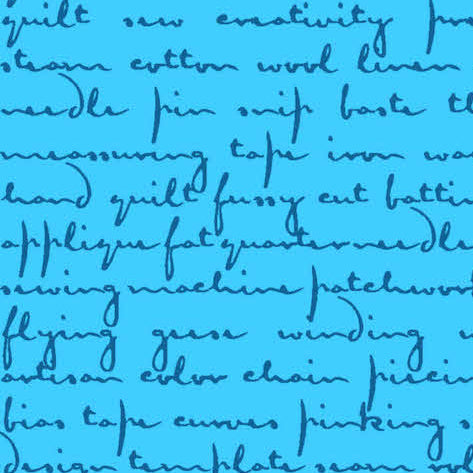 quilt sew creativity pre
steam cotton wool linen
needle pin snip baste th
measuring tape iron wa
hand quilt fussy cut batti
applique fat quarter needle
sewing machine patchwork
flying geese winding w
artisan color chain piecin
bias tape curves pinking s
design template seam